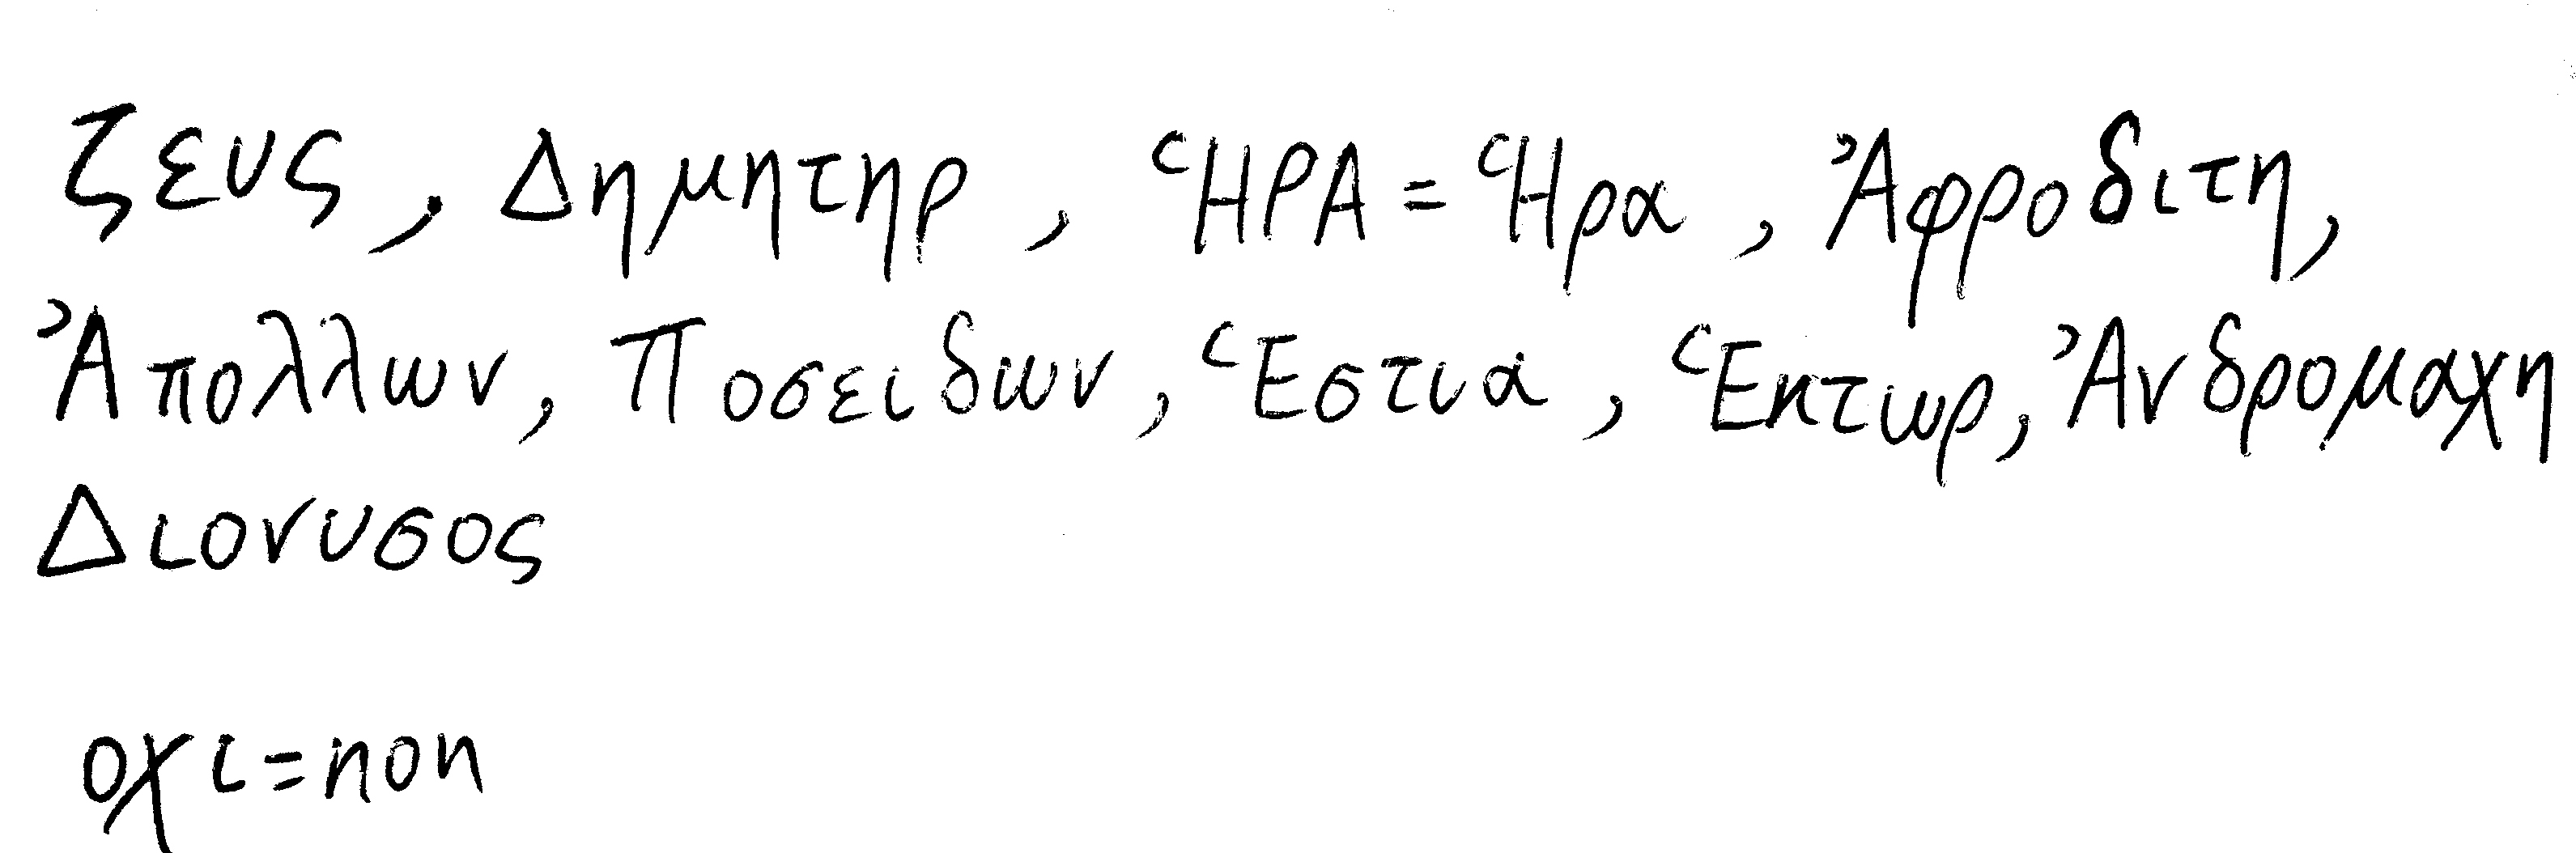 ζευς, Δημητηρ, ῾ΗΡΑ = ῾Ηρα, ᾿Αφροδιτη,
᾿Απολλων, Ποσειδων, ῾Εστια, ῾Εκτωρ, ᾿Ανδρομαχη
Διονυσος
οχι = non